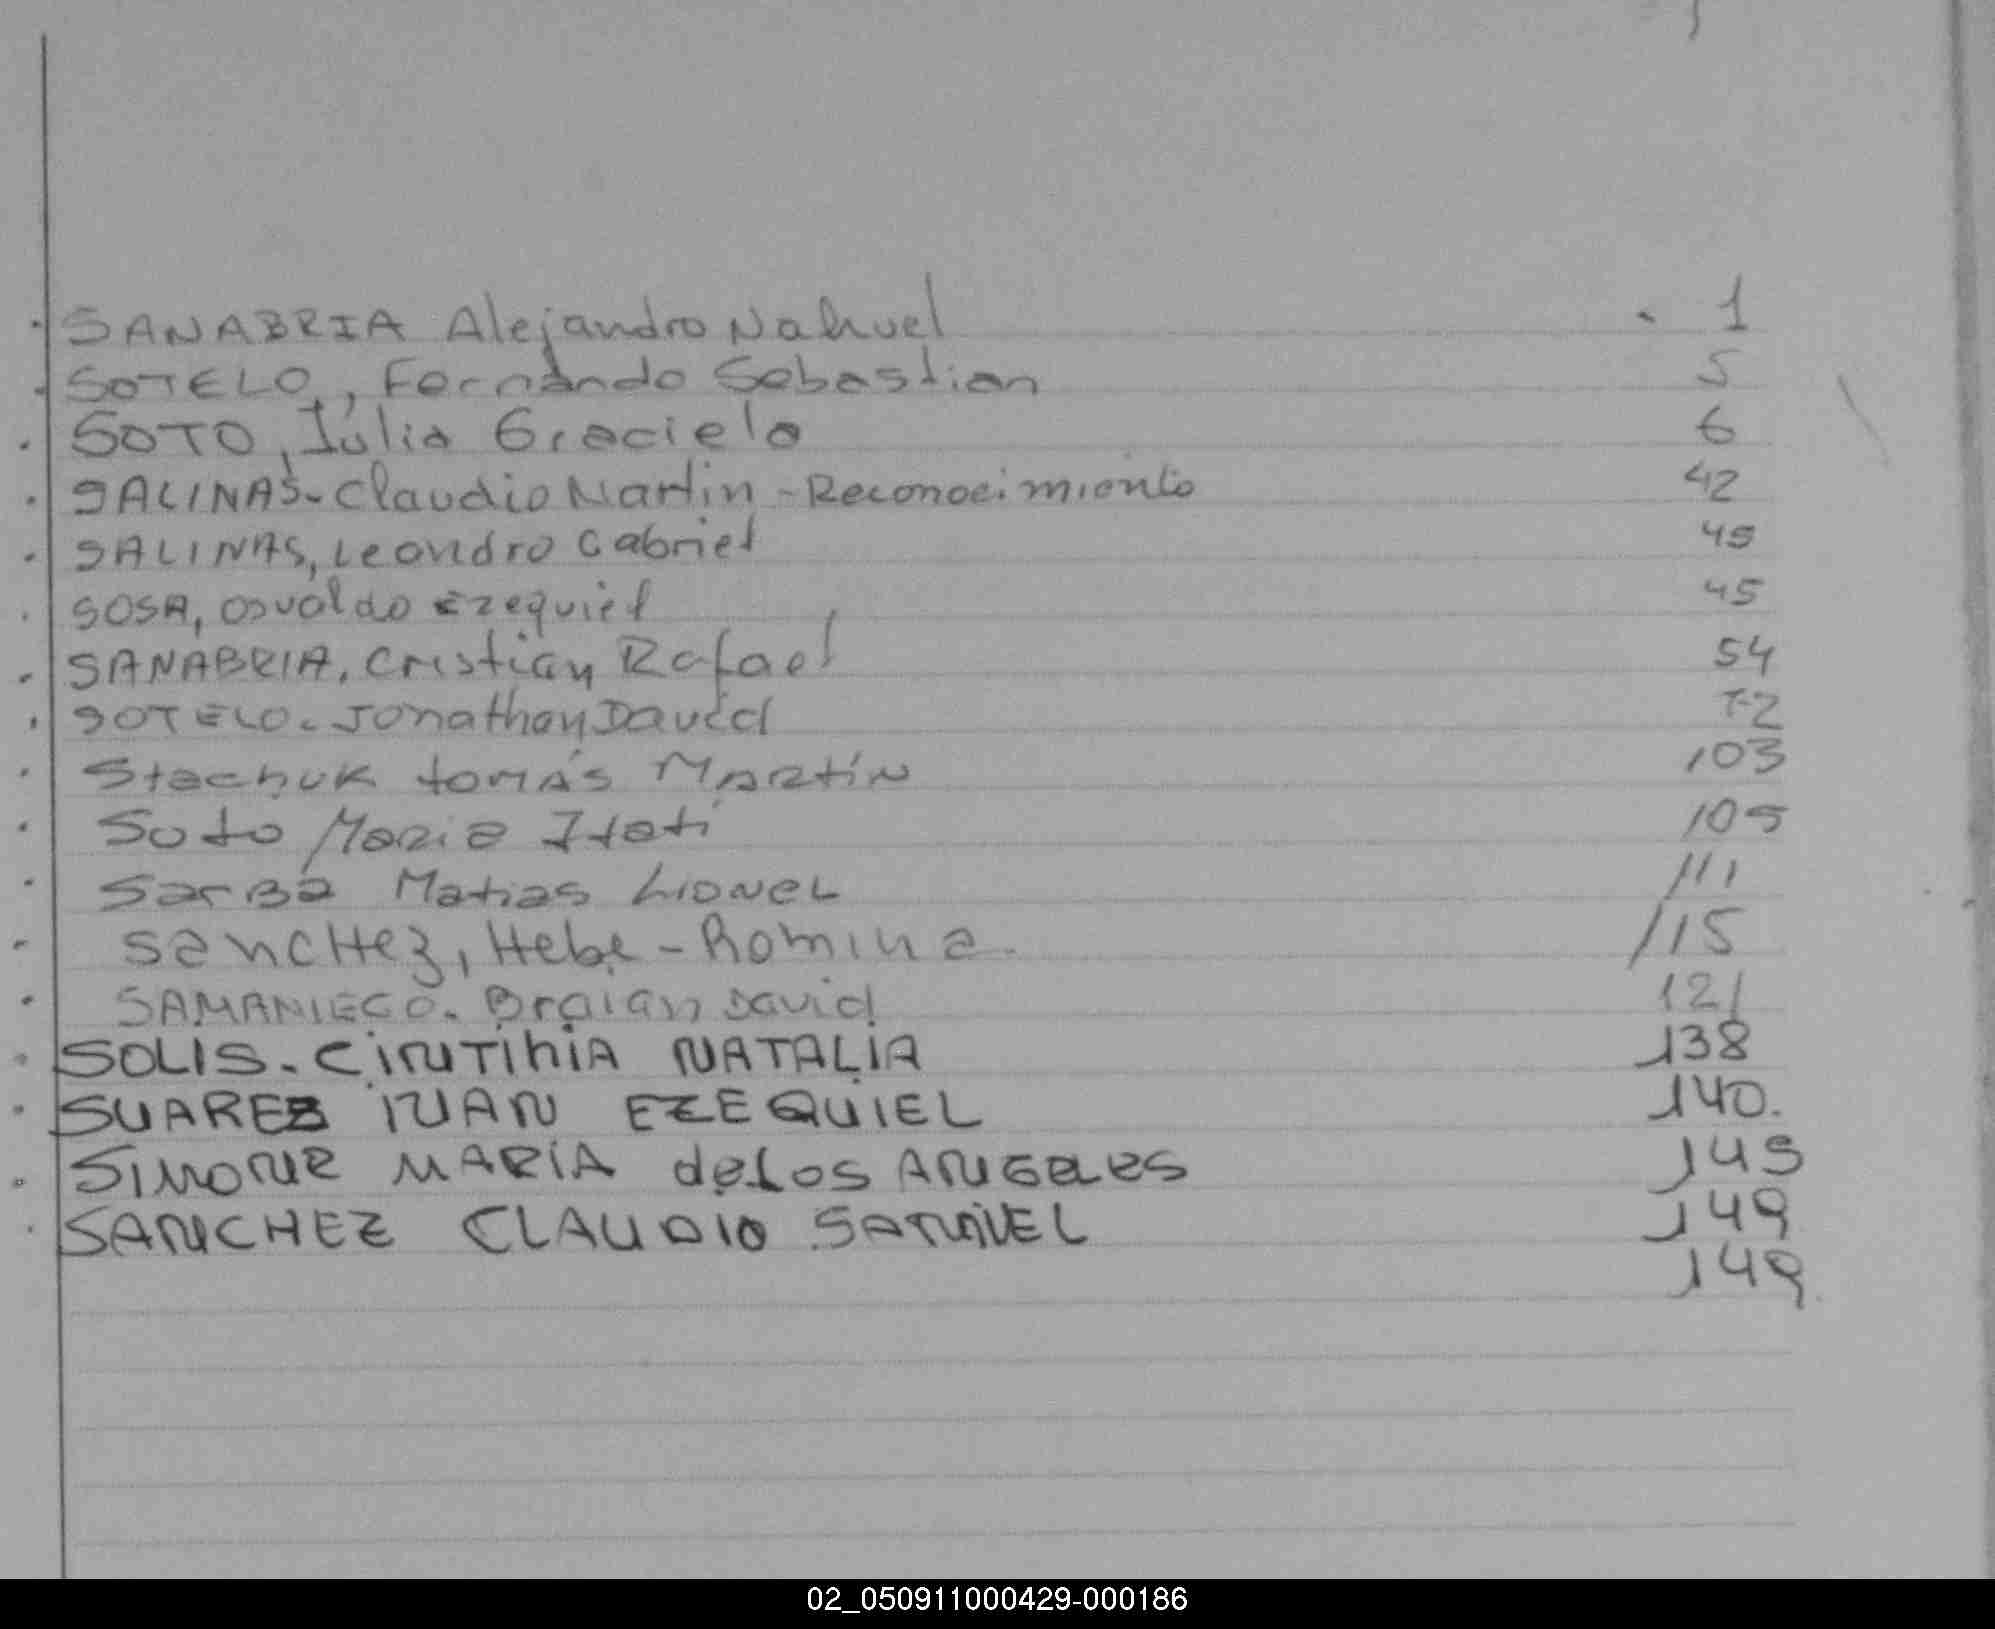 SANABRIA Alejandro Nahuel . 1
SOTELO, Fernando Sebastian 5
SOTO, Julia Graciela 6
SALINAS- Claudio Martin - Reconocimiento 42
SALINAS, Leandro Gabriel 45
SOSA, Osvaldo Ezequiel 45
SANABRIA, Cristian Rafael 54
SOTELO. Jonathan David 72
Stachuk tomás Martín 103
Soto Maria Itati 105
Sarba Matias Lionel 111
SanCHez, Hebe - Romina. 115
SAMANIEGO. Braian David 121
SOLIS. CINTIhIA NATALIA 138
SUAREZ IVAN EZEQUIEL 140.
SIMONE MARIA de Los ANGELES 145
SANCHEZ CLAUDIO SAMUEL 149
149
02_050911000429-000186